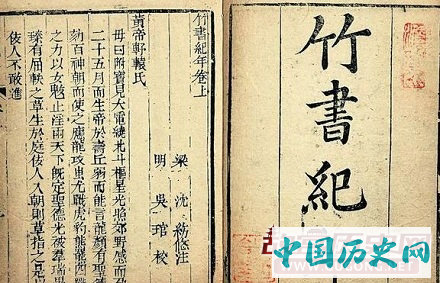 竹書紀
竹書紀年卷上
梁 沈約修注
明 吳琯校
黃帝軒轅氏
母曰附寶見大電繞北斗樞星光照郊野感而孕
二十五月而生帝於壽丘弱而能言龍顏有聖
劾百神朝而使之應龍攻蚩尤戰虎豹熊羆四
之力以女魃止淫雨天下既定聖德光被羣瑞畢
臻有屈軼之草生於庭佞人入朝則草指之是以
佞人不敢進
中国历史网